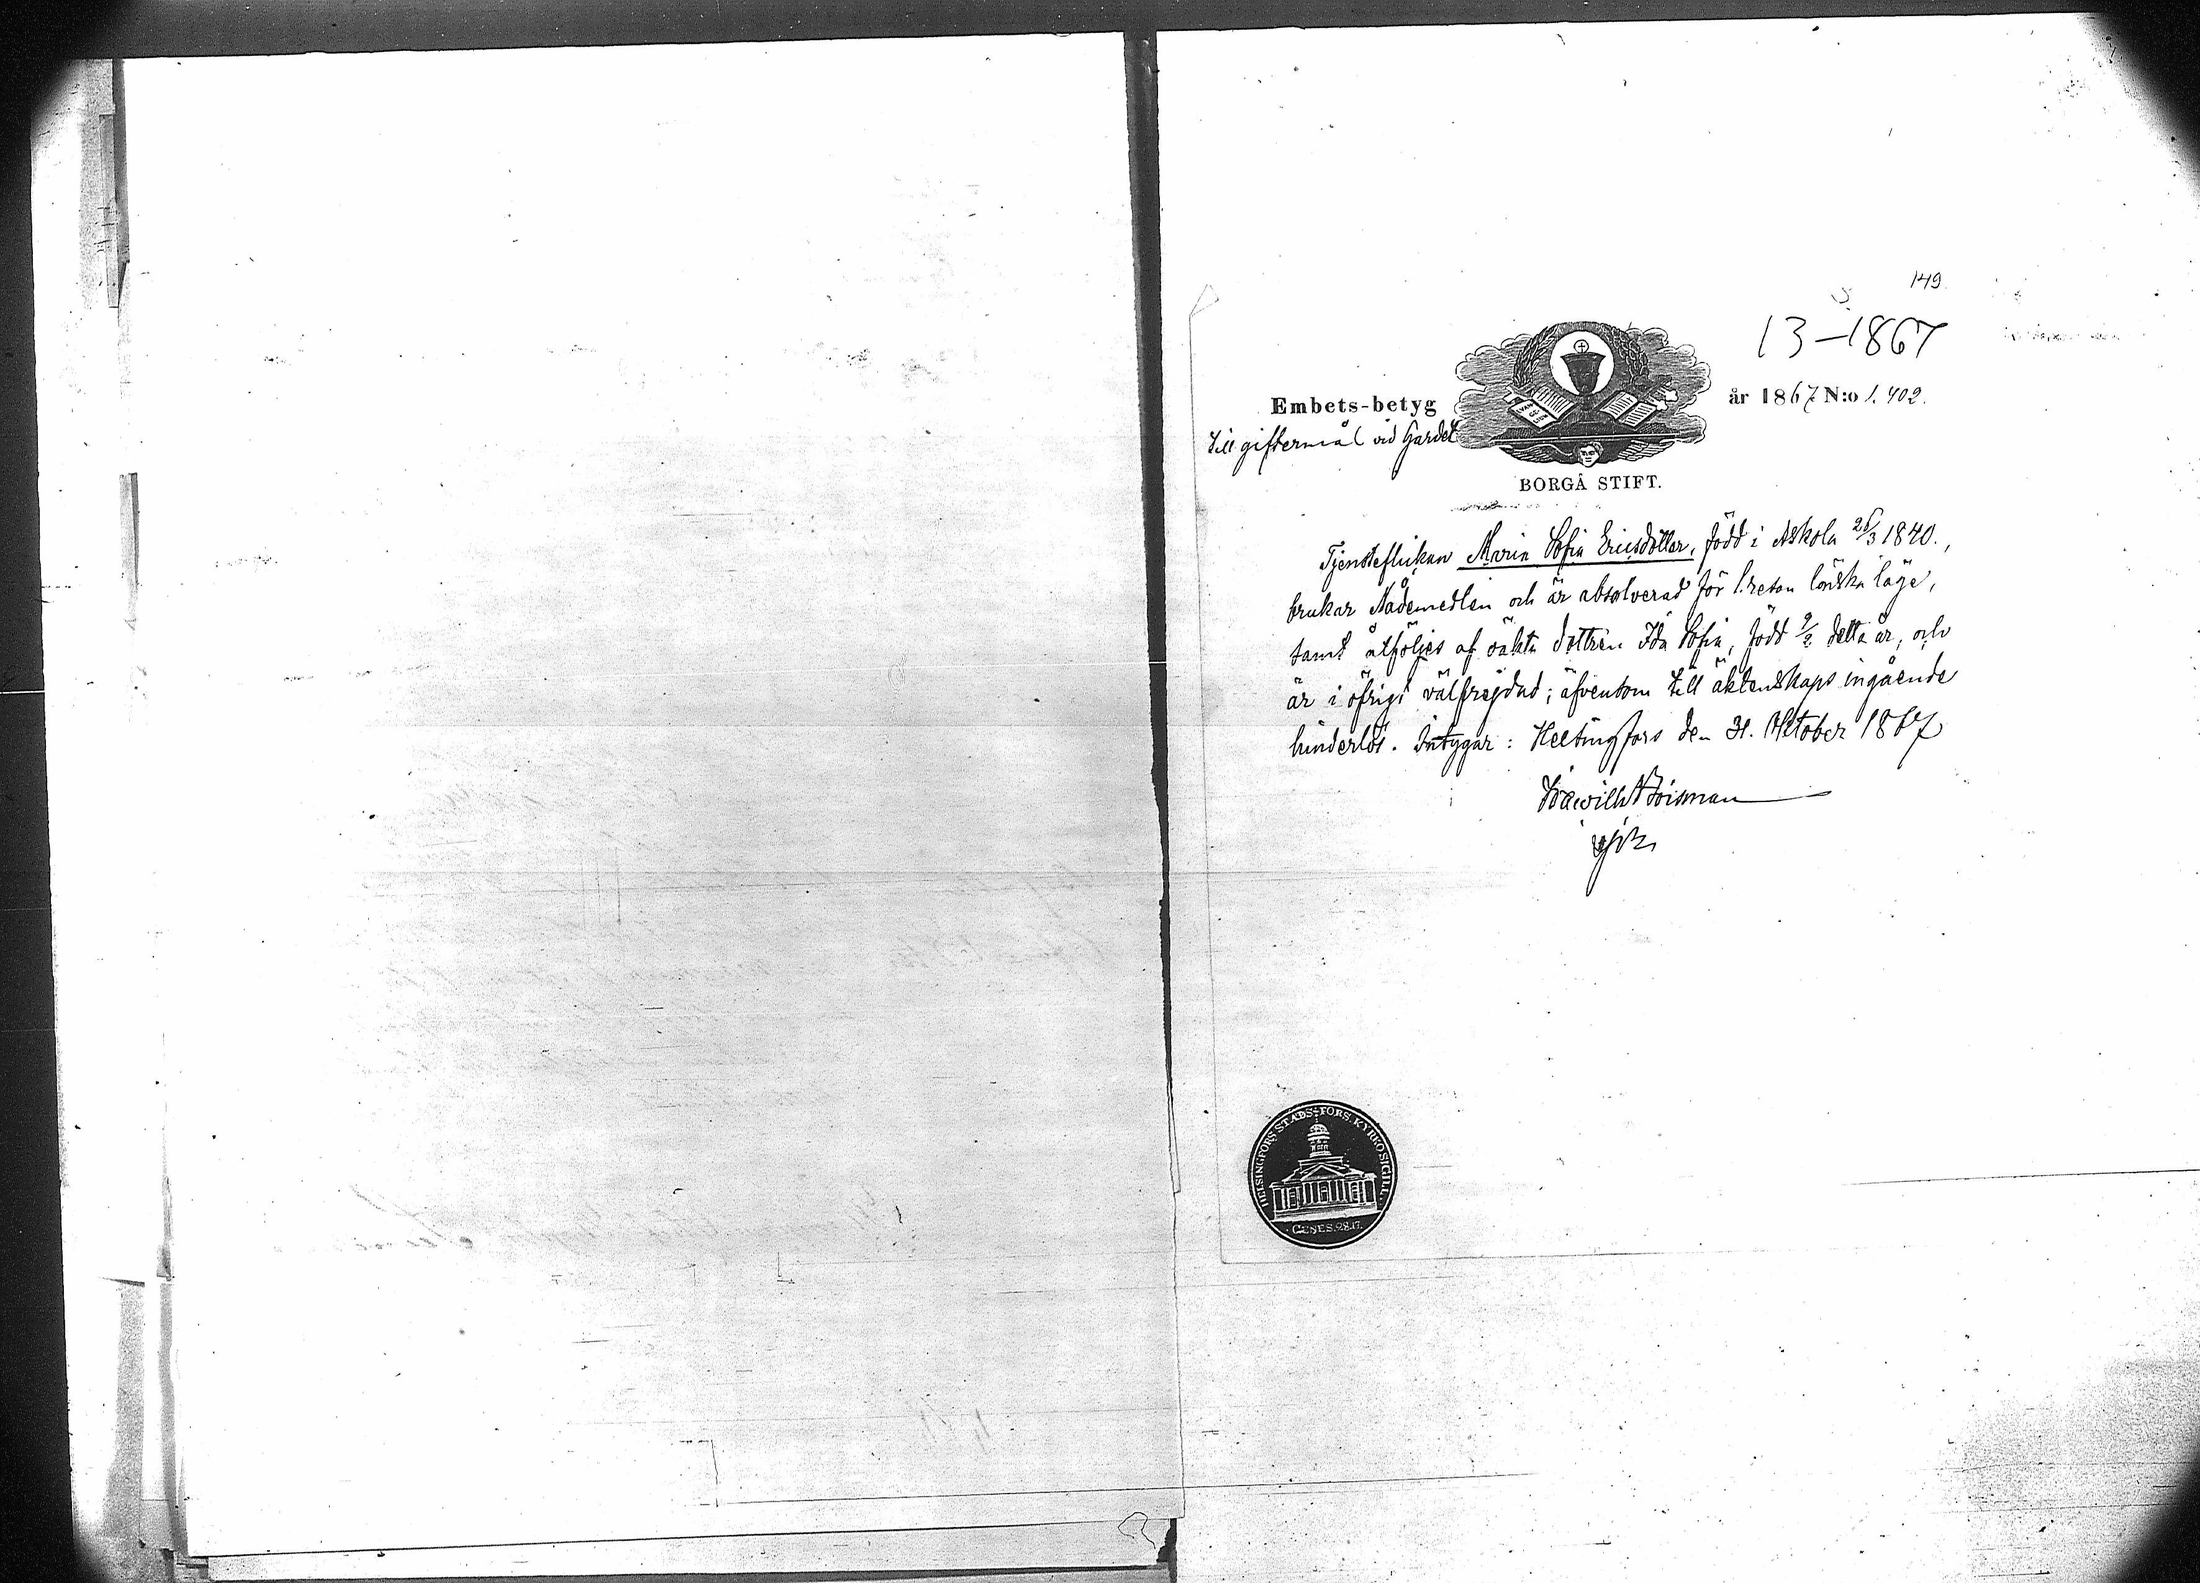 149
13–1867
Embets-betyg
år 1867 N:o 1.402.
till giftermål vid Gardet
BORGÅ STIFT.
Tjensteflickan Maria Sofia Ericsdotter, född i Askola 25/3 1840.,
brukar Nådemedlen och är absolverad för 1. resan lönska läge,
samt åtföljes af oäkta dottren Ida Sofia, född 9/2 detta år, och
är i öfrigt välfrejdad; äfvensom till äktenskaps ingående
hinderlös. Intygar: Helsingfors den 31. Oktober 1867
HELSINGFORS STADS-FORS. KYRKOSIGILL.
GENES. 28. 17.